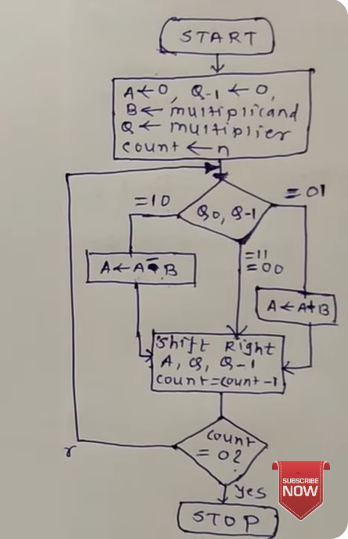 START
A ← 0, Q-1 ← 0,
B ← multiplicand
Q ← multiplier
count ← n
=10
=01
Q0, Q-1
=11
=00
A ← A - B
A ← A+B
Shift Right
A, Q, Q-1
count=count-1
count
= 0?
yes
STOP
SUBSCRIBE
NOW